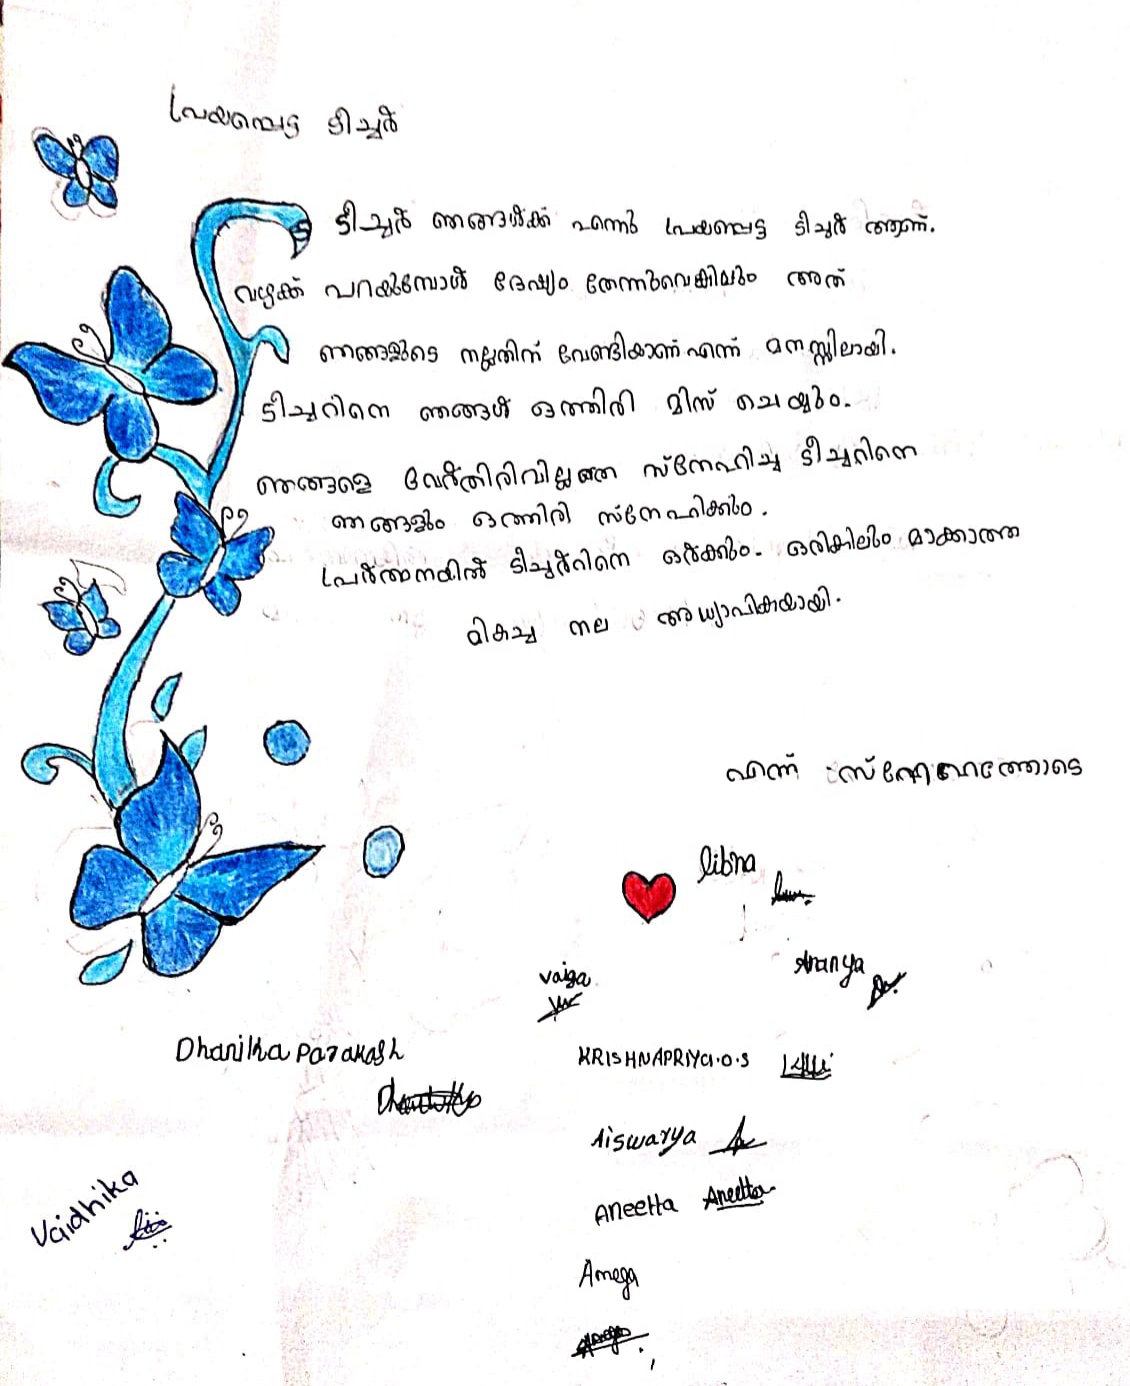 പ്രേയപ്പെട്ട ടീച്ചർ
ടീച്ചർ ഞങ്ങൾക്ക് എന്നും പ്രേയപ്പെട്ട ടീച്ചർ ആണ്.
വഴക്ക് പറയുമ്പോൾ ദേഷ്യം തോന്നുവെങ്കിലും അത്
ഞങ്ങളുടെ നല്ലതിന് വേണ്ടിയാണ് എന്ന് മനസ്സിലായി.
ടീച്ചറിനെ ഞങ്ങൾ ഒത്തിരി മിസ് ചെയ്യും.
ഞങ്ങളെ വേർതിരിവില്ലാതെ സ്നേഹിച്ച ടീച്ചറിനെ
ഞങ്ങളും ഒത്തിരി സ്നേഹിക്കും.
പ്രേർത്ഥനയിൽ ടീച്ചർറിനെ ഓർക്കും. ഒരിക്കിലും മാക്കാത്ത
മികച്ച നല അധ്യാപികയായി.
എന്ന് സ്നേഹത്തോടെ
libna
Aranya
vaiga
Dhanika Parakash
KRISHNAPRIYA.O.S
Aiswarya
Aneetta Aneetta
Vaidhika
Amega